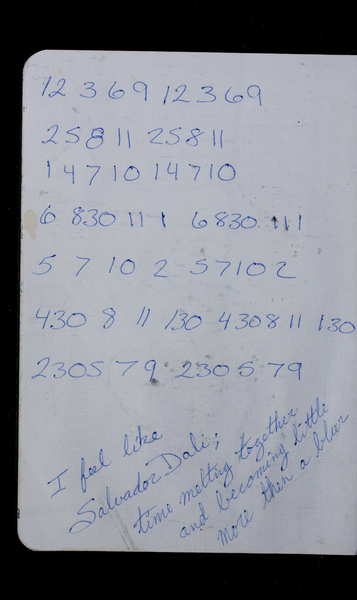 12 3 6 9 12 3 6 9
2 5 8 11 2 5 8 11
1 4 7 10 1 4 7 10
6 830 11 1 6 830 11 1
5 7 10 2 5 7 10 2
430 8 11 130 430 8 11 130
230 5 7 9 230 5 7 9
I feel like
Salvador Dali;
time meltng together
and becoming little
more then a bleer